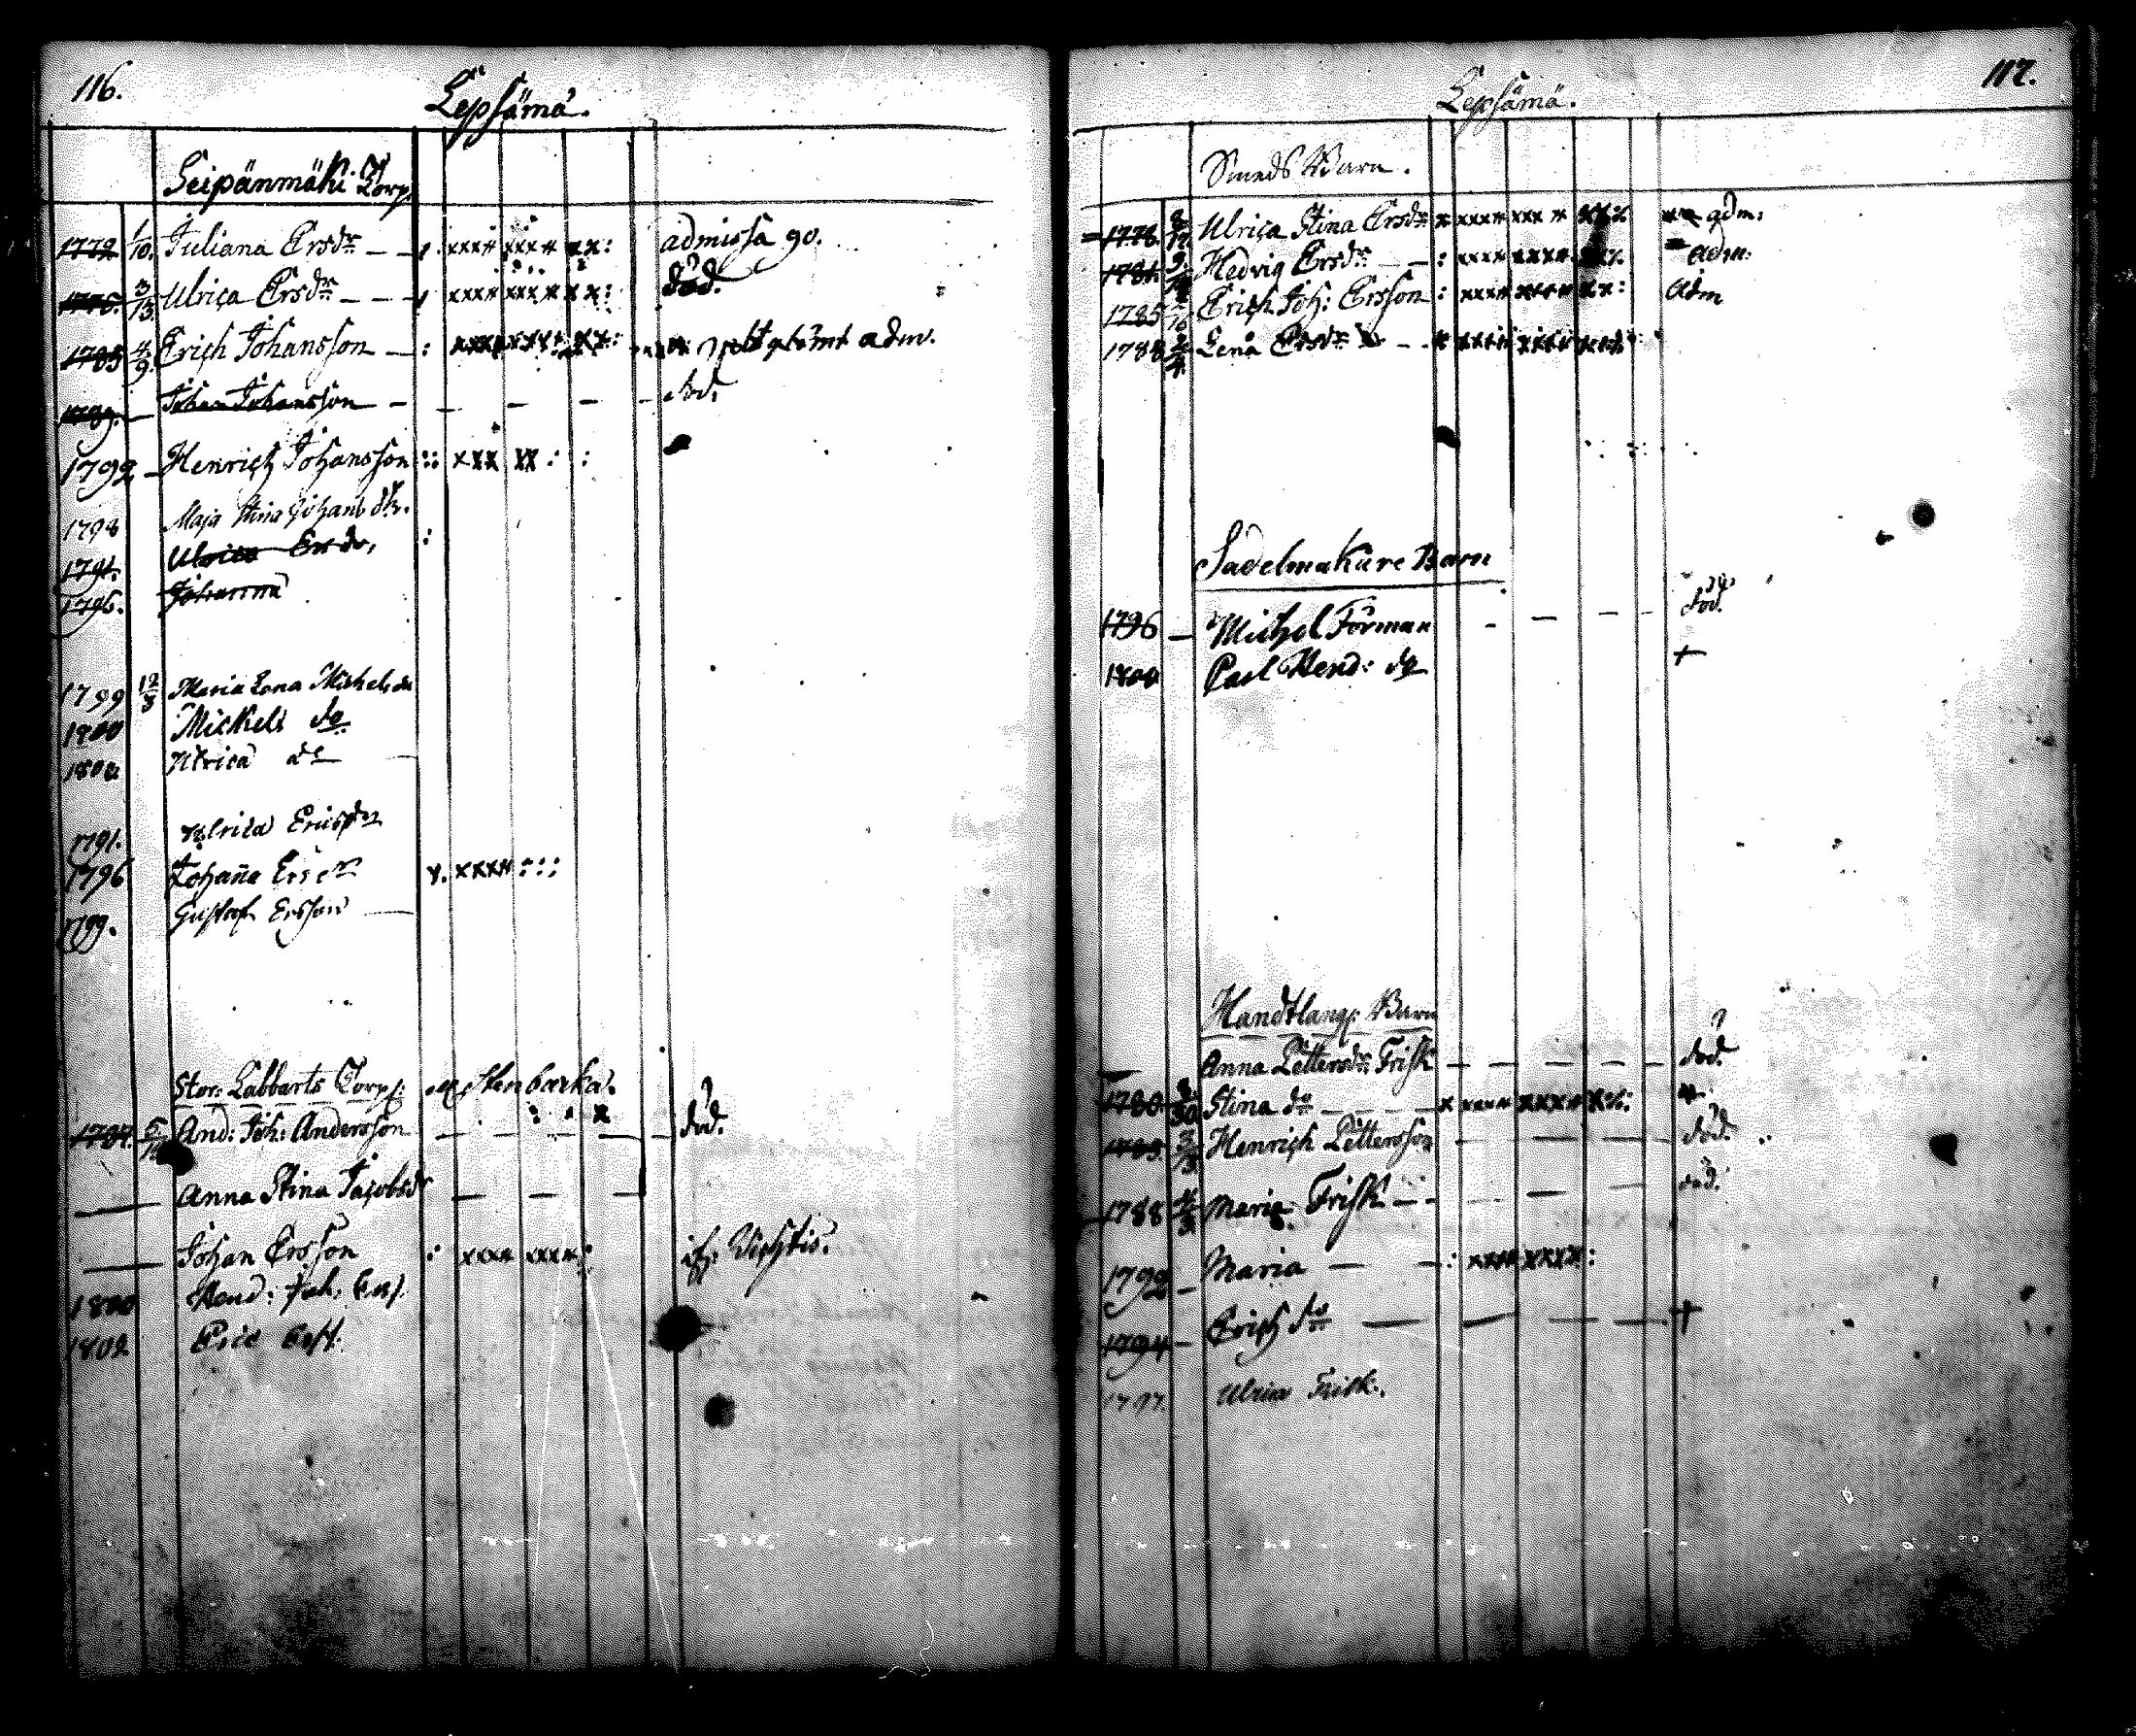 116.
Lepsämä.
Seipänmäki Torp
1772 1/10. Juliana Ersdr — — admissa 90.
1776. 3/13. Ulrica Ersdr — — — död.
1785 4/9. Erich Johansson — adm.
1789. — Johan Johansson — — — — — död.
1792 — Henrich Johansson
1798 Maja Stina Johansdr.
1791. Ulrica Ersdr,
1796. Johanna
1799 12/3 Maria Lena Michelsdr
1800 Mickel do
Ulrica do —
1791. Ulrica Ericsdr
1796 Johaña Ersdr
1799. Gustaf Ersson —
Stor: Labbarts Torp: Stenbacka.
1787. And: Joh: Andersson — — — — — död.
— Anna Stina Jacobsdr — — —
— Johan Ersson Vichtis.
1800 Hend: Joh. Ers.
1802 Eric
117.
Lepsämä.
Smeds Barn.
1778. Ulrica Stina Ersdr adm:
1781. Hedvig Ersdr — adm:
1785 Erich Joh: Ersson adm
1788 Lena Ersdr
Sadelmakare Barn
1796 — Michel Förman — — — — död.
1800 Carl Hend: do +
Handtlang: Barn
— Anna Pettersdr Frisk — — — — — död.
1780. Stina do — — —
1783. Henrich Pettersson — — — — död.
1788 4/3 Maria Frisk — — död.
1792 — Maria — —
1794 — Erich do — — — — +
1797. Ulrica Frisk.